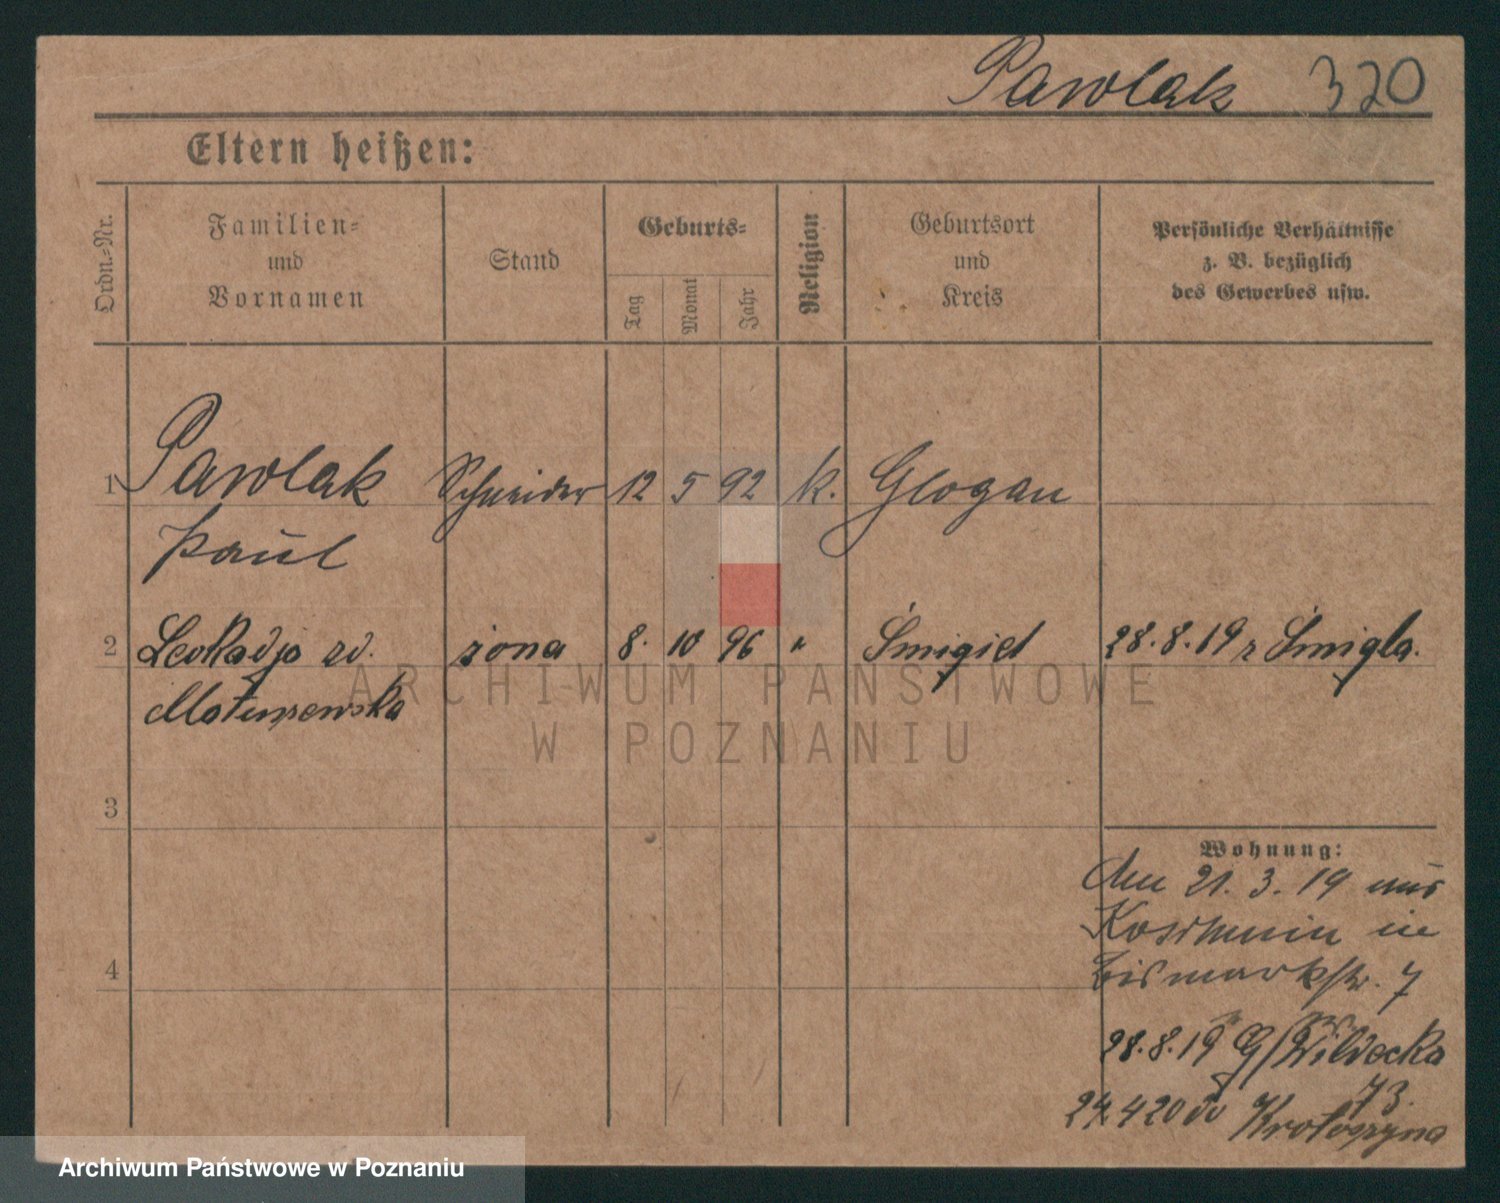 Pawlak 320
Eltern heißen:
Ordn.-Nr.
Familien-
und
Vornamen
Stand
Geburts-
Tag
Monat
Jahr
Religion
Geburtsort
und
Kreis
Persönliche Verhältnisse
z. B. bezüglich
des Gewerbes usw.
1 Pawlak Schneider 12 5 92 k. Glogau
Paul
2 Leokadja żona 8. 10 96 " Śmigiel 28.8.19 z Śmigla.
3
4
Wohnung:
den 21. 3. 19 aus
Koschmin in
Bismarkstr. 7
28.8.19 G/Wildecka
73.
24.4 20 do Krotoszyna
ARCHIWUM PAŃSTWOWE
W POZNANIU
Archiwum Państwowe w Poznaniu